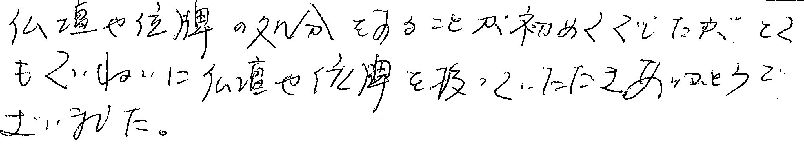 仏壇や位牌の処分をすることが初めてでしたが とて
もていねいに仏壇や位牌を扱っていただきありがとうご
ざいました。